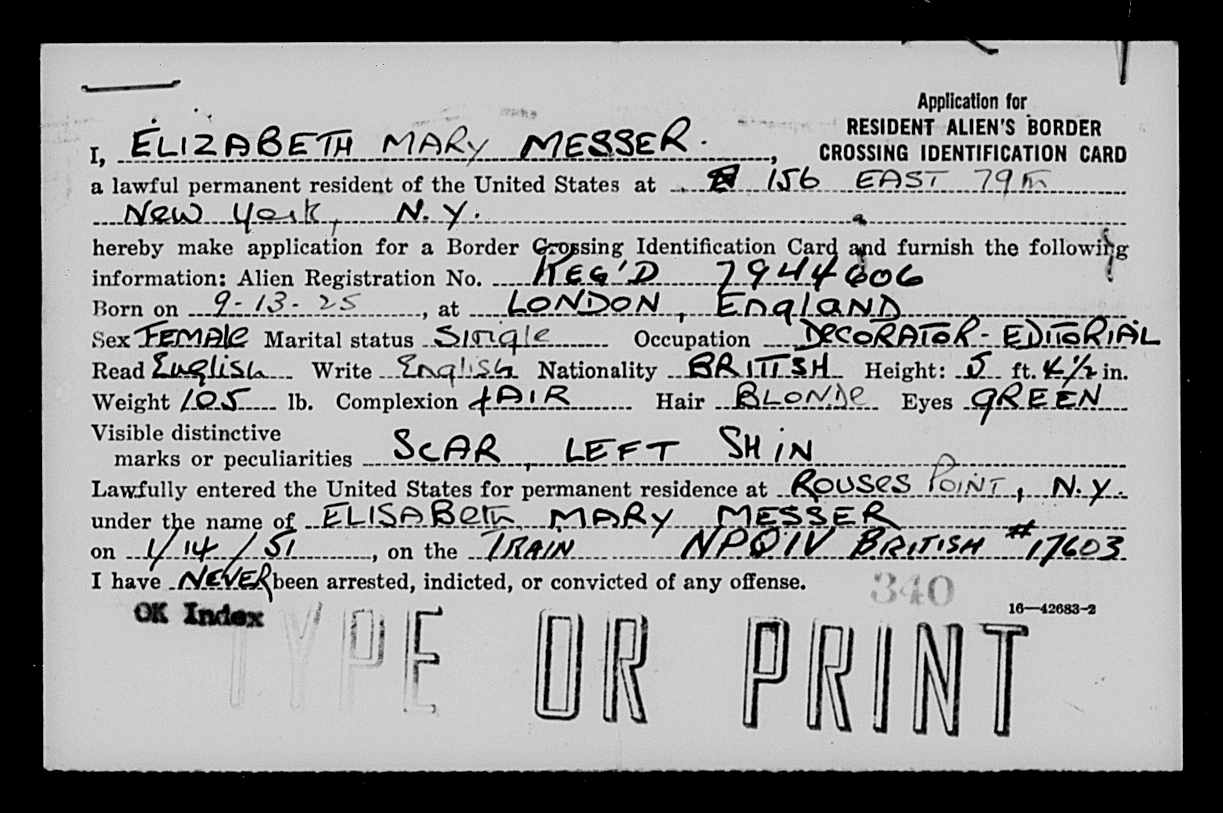 Application for
RESIDENT ALIEN'S BORDER
CROSSING IDENTIFICATION CARD
I, ELIZABETH MARY MESSER.,
a lawful permanent resident of the United States at 156 EAST 79th
New York, N.Y.
hereby make application for a Border Crossing Identification Card and furnish the following
information: Alien Registration No. REG'D 7944606
Born on 9-13-25, at LONDON, England
Sex Female Marital status Single Occupation DECORATOR-EDITORIAL
Read English Write English Nationality BRITISH Height: 5 ft. 4 1/2 in.
Weight 105 lb. Complexion fAIR Hair BLONDe Eyes gREEN
Visible distinctive
marks or peculiarities SCAR, LEFT SHiN
Lawfully entered the United States for permanent residence at ROUSES POINT, N.Y.
under the name of ELISABeth MARY MESSER
on 1/14/51, on the TRAIN NPQIV BRITISH #17603
I have NEVER been arrested, indicted, or convicted of any offense.
340
OK Index
16—42683-2
TYPE OR PRINT